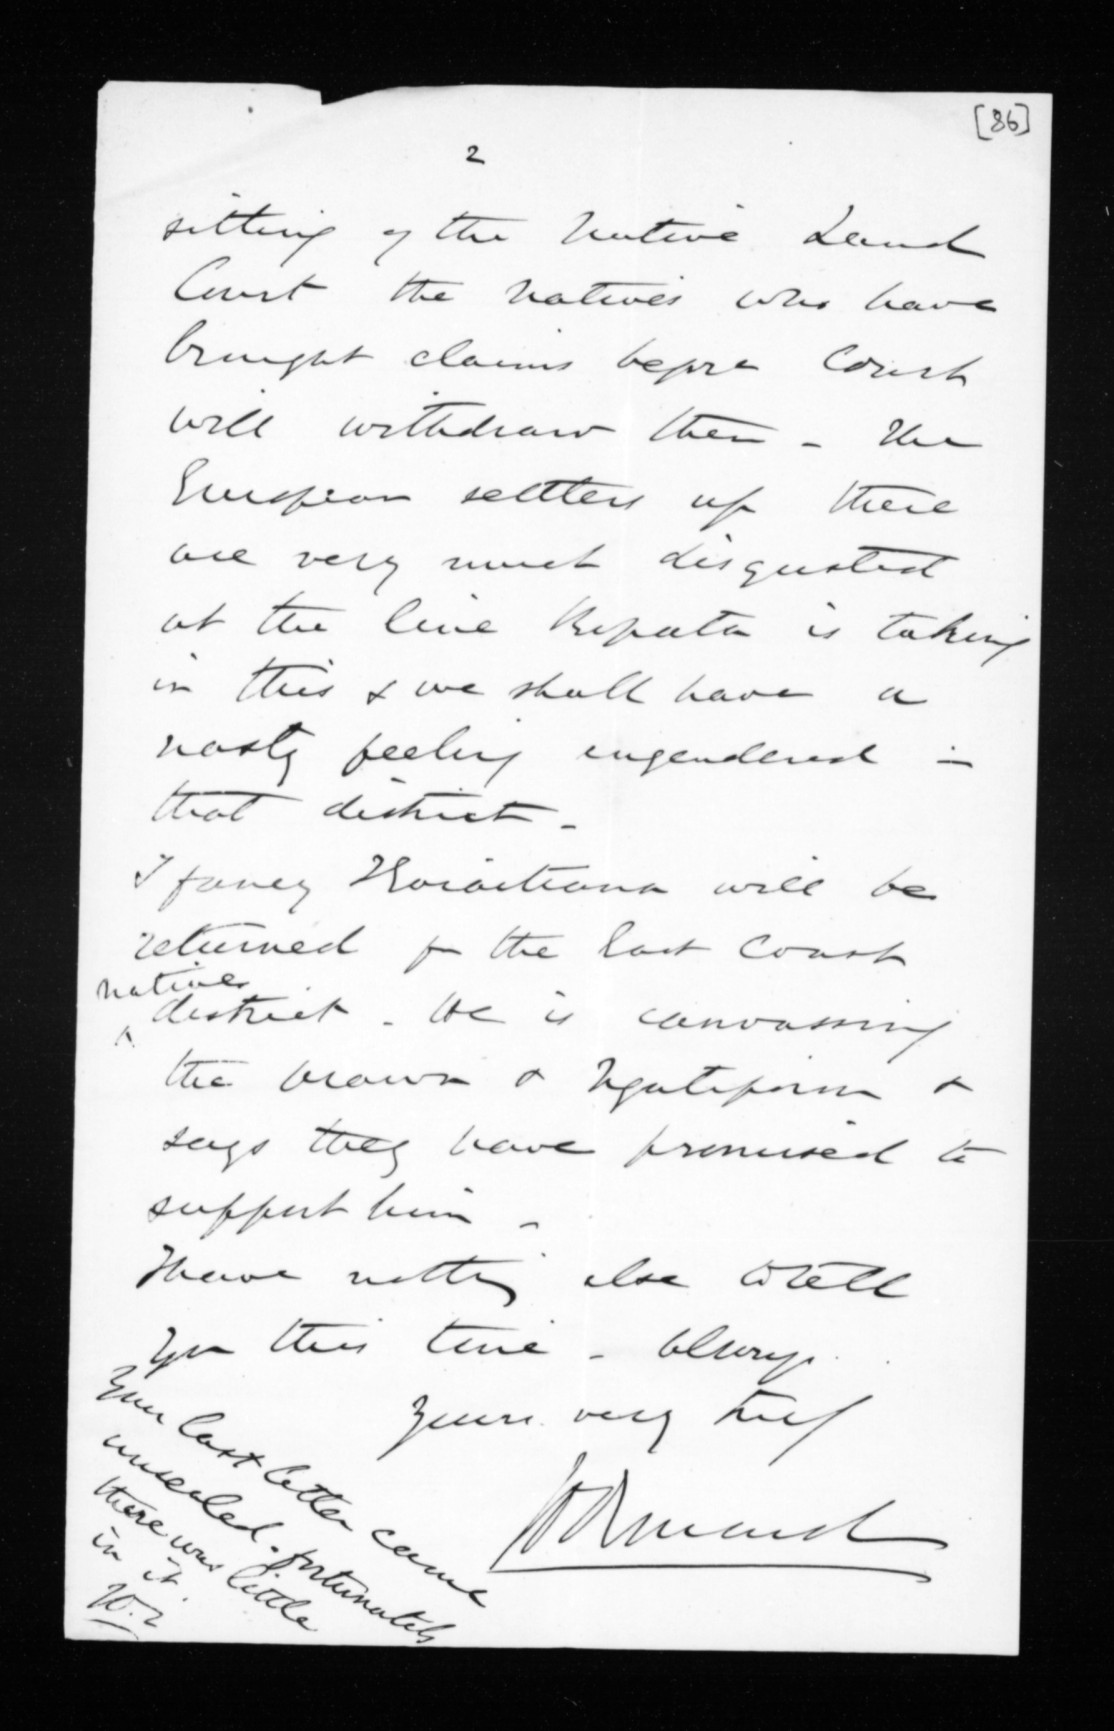 [86]
2
sitting of the Native Land
Court the Natives who have
brought claims before Court
will withdraw them - The
European settlers up there
are very much disgusted
at the line Ropata is taking
in this & we shall have a
nasty feeling engendered in
that district -
I fancy Karaitiana will be
returned for the East Coast
natives
district - He is canvassing
the & Ngatiporou &
says they have promised to
support him -
I have nothing else to tell
you this time - Always
Yours very truly
Your last letter came
unsealed - fortunately
there was little
in it.